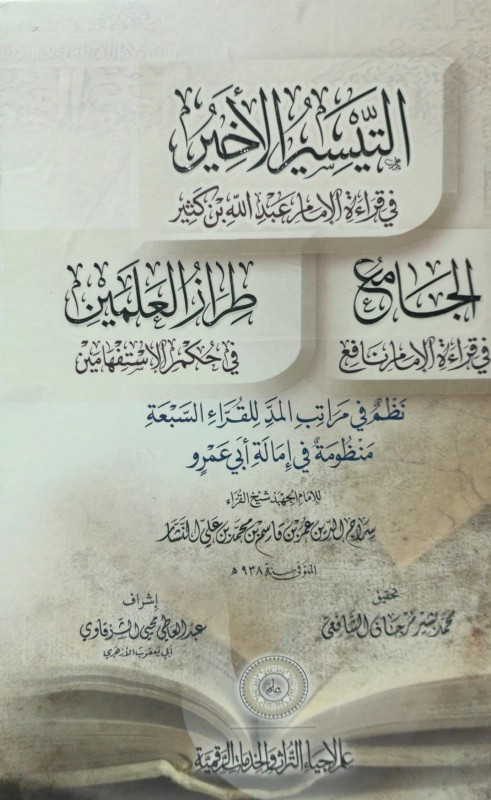 التَّيْسِيرُ الأَخِيرُ
في قراءة الإمام عبد الله بن كثير
الجامع
في قراءة الإمام نافع
طراز العلمين
في حكم الاستفهامين
نظم في مراتب المد للقراء السبعة
منظومة في إمالة أبي عمرو
للإمام الجهبذ شيخ القراء
سراج الدين عمر بن قاسم بن محمد بن علي النشار
المتوفى سنة ٩٣٨ هـ
تحقيق
محمد بشير مرجان الشافعي
إشراف
عبد العاطي محيي الشرقاوي
أبي يعقوب الأزهري
علم
علم لإحياء التراث والخدمات الرقمية